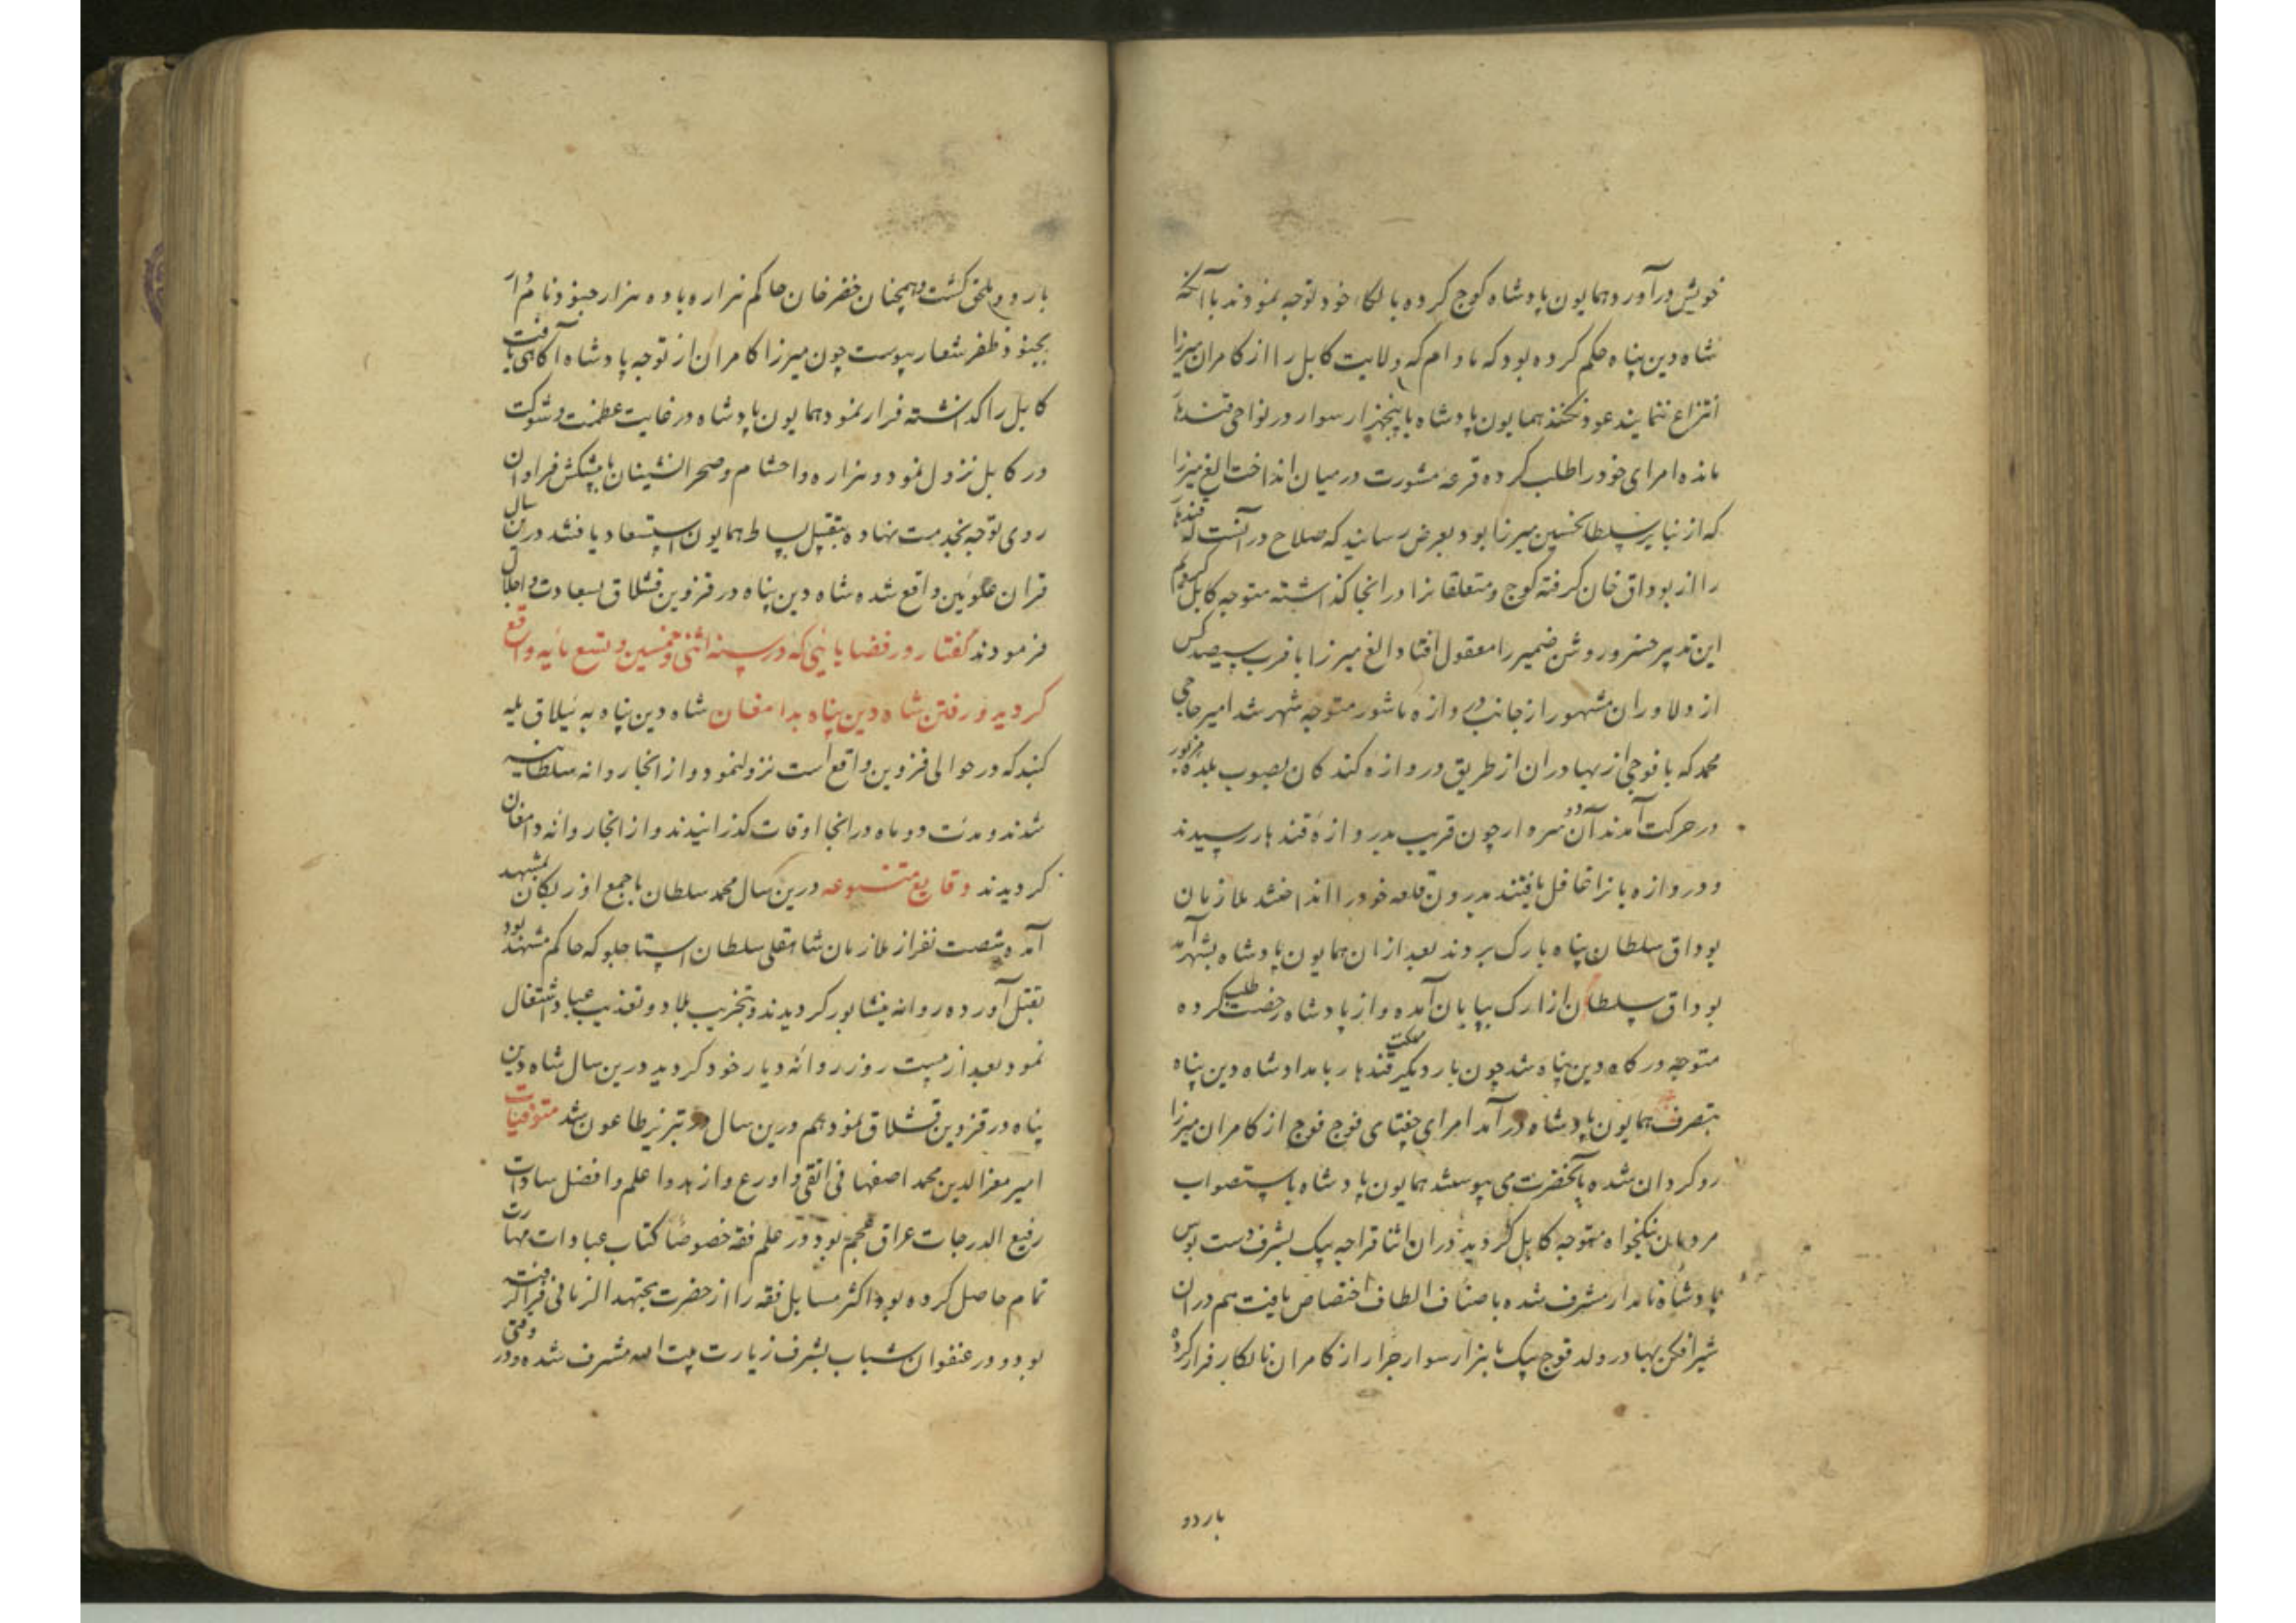 خویش درآورد و همایون پادشاه کوچ کرده بالکاء خود توجه نمودند با آنکه
شاه دین پناه حکم کرده بود که مادام که ولایت کابل را از کامران میرزا
انتزاع ننمایند عود نکنند همایون پادشاه با پنجهزار سوار در نواحی قندهار
مانده امرای خود را طلب کرده قرعه مشورت در میان انداخت الغ میرزا
که از نبایر سلطانحسین میرزا بود بعرض رسانید که صلاح در آنست که قندهار
را از بوداق خان گرفته کوچ و متعلقانرا در انجا گذاشته متوجه کابل کردیم
این تدبیر خسرو روشن ضمیر را معقول افتاد الغ میرزا با قرب سیصد کس
از دلاوران مشهور از جانب دروازه ماشور متوجه شهر شد امیر حاجی
محمد که با فوجی از بهادران از طریق دروازه کندکان بصوب بلده مزبور
در حرکت آمدند آن دو سردار چون قریب بدروازه قندهار رسیدند
و دروازه بانرا غافل یافتند بدرون قلعه خود را انداختند ملازمان
بوداق سلطان پناه بارک بردند بعد ازان همایون پادشاه بشهر آمد
بوداق سلطان از ارک بپایان آمده و از پادشاه رخصت طلب کرده
متوجه درکاه دین پناه شد چون بار دیگر مملکت قندهار بامداد شاه دین پناه
بتصرف همایون پادشاه درآمد امرای جغتای فوج فوج از کامران میرزا
روکردان شده بآنحضرت می پیوستند همایون پادشاه باستصواب
مردمان نیکخواه متوجه کابل گردید دران اثنا قراجه بیک بشرف دست بوس
پادشاه نامدار مشرف شده باصناف الطاف اختصاص یافت هم دران
شیرافکن بهادر ولد قوج بیک با هزار سوار جرار از کامران نابکار فرار کرده
باردو
باردو ملحق کشت و همچنان خضر خان حاکم هزاره با ده هزار جنود نامدار
بجنود ظفر شعار پیوست چون میرزا کامران از توجه پادشاه آکاهی یافت
کابل را کذاشته فرار نمود همایون پادشاه در غایت عظمت و شوکت
در کابل نزول نمود و هزاره و احشام و صحرانشینان با پیشکش فراوان
روی توجه بخدمت نهاده بتقبیل بساط همایون استسعاد یافتند درین سال
قران علویین واقع شده شاه دین پناه در قزوین قشلاق بسعادت و اجلال
فرمودند گفتار در قضایائی که در سنه اثنی و خمسین و تسعمائه واقع
کردید و رفتن شاه دین پناه بدامغان شاه دین پناه به ییلاق یله
کنبد که در حوالی قزوین واقع است نزول نمود و از انجا روانه سلطانیه
شدند و مدت دو ماه در انجا اوقات کذرانیدند و از انجا روانه دامغان
کردیدند وقایع متنوعه درین سال محمد سلطان با جمع اوزبکان بمشهد
آمده شصت نفر از ملازمان شاهقلی سلطان استاجلو که حاکم مشهد بود
بقتل آورده روانه نیشابور کردیدند و بتخریب بلاد و تعذیب عباد اشتغال
نمود بعد از بیست روز روانه دیار خود کردید درین سال شاه دین
پناه در قزوین قشلاق نمود هم درین سال در تبریز طاعون شد متوفیات
امیر معزالدین محمد اصفهانی اتقی و اورع و ازهد و اعلم و افضل سادات
رفیع الدرجات عراق عجم بود و در علم فقه خصوصا کتاب عبادات مهارت
تمام حاصل کرده بود و اکثر مسایل فقه را از حضرت مجتهد الزمانی فرا گرفته
بود و در عنفوان شباب بشرف زیارت بیت الله مشرف شده و در وقتی